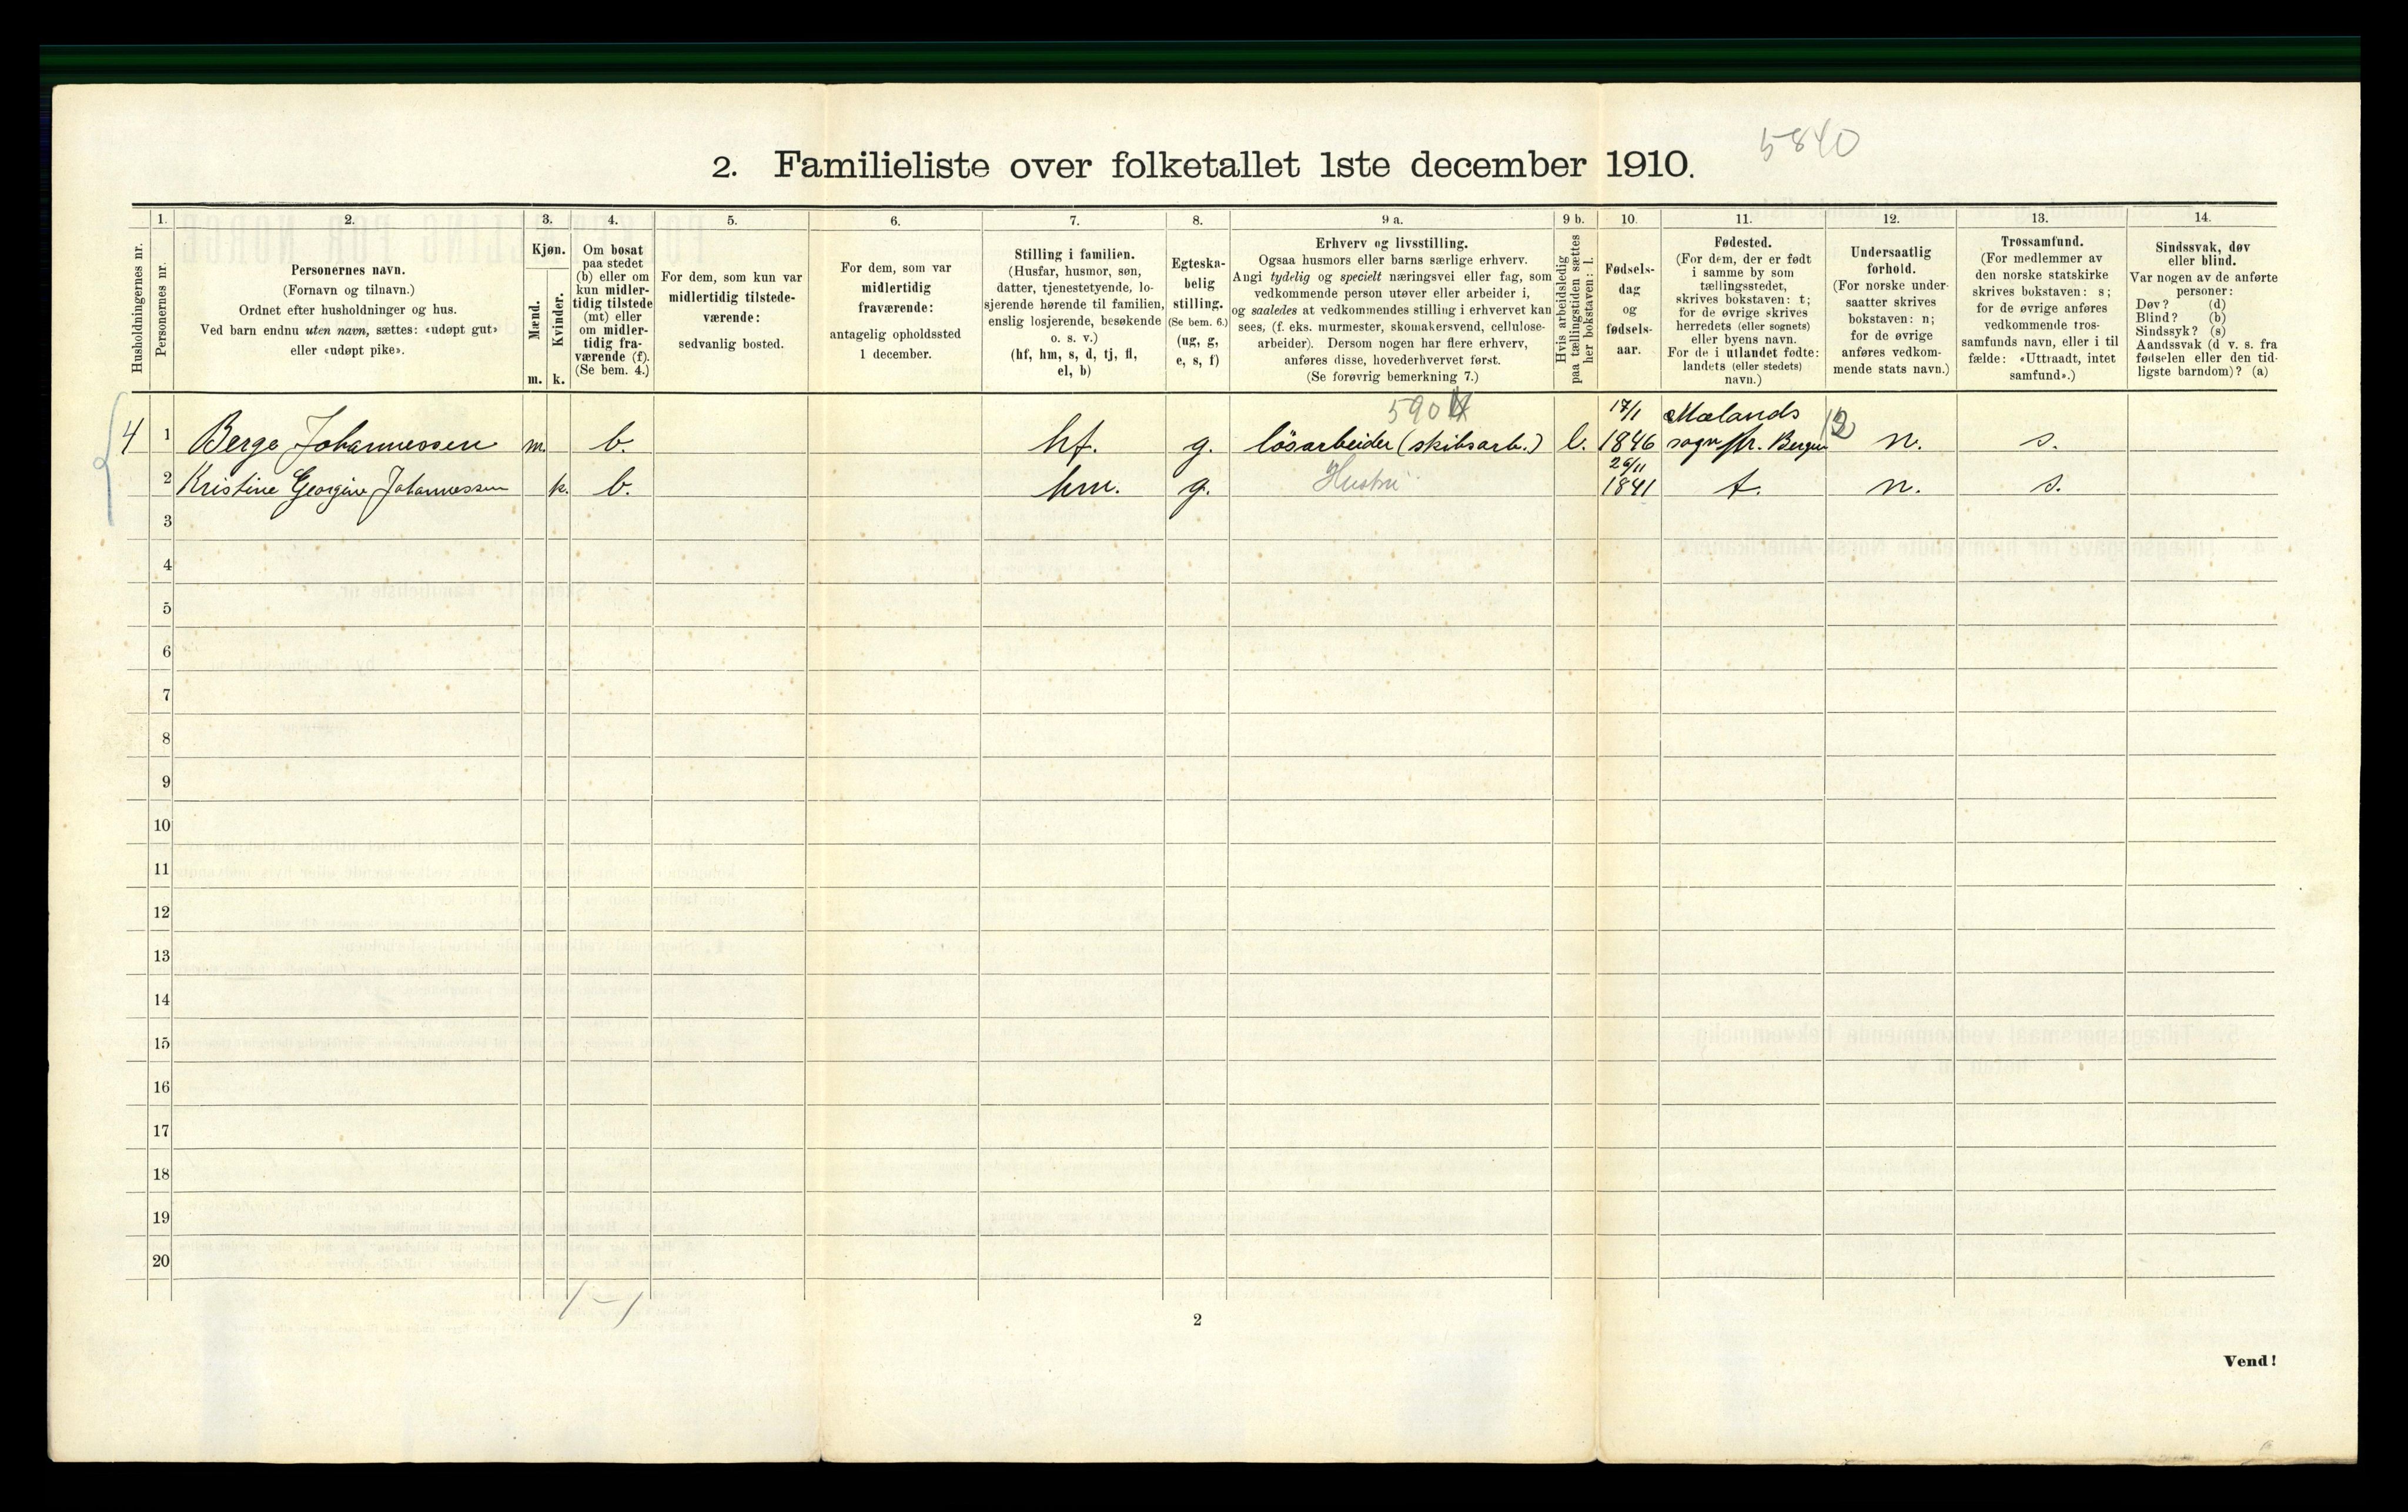 5840
2. Familieliste over folketallet 1ste december 1910.
Husholdningernes nr.
1.
Personernes nr.
2.
Personernes navn.
(Fornavn og tilnavn.)
Ordnet efter husholdninger og hus.
Ved barn endnu uten navn, sættes: «udøpt gut»
eller «udøpt pike».
3.
Kjøn.
Mænd.
Kvinder.
m. k.
4.
Om bosat
paa stedet
(b) eller om
kun midler-
tidig tilstede
(mt) eller
om midler-
tidig fra-
værende (f).
(Se bem. 4.)
5.
For dem, som kun var
midlertidig tilstede-
værende:
sedvanlig bosted.
6.
For dem, som var
midlertidig
fraværende:
antagelig opholdssted
1 december.
7.
Stilling i familien.
(Husfar, husmor, søn,
datter, tjenestetyende, lo-
sjerende hørende til familien,
enslig losjerende, besøkende
o. s. v.)
(hf, hm, s, d, tj, fl,
el, b)
8.
Egteska-
belig
stilling.
(Se bem. 6.)
(ug, g,
e, s, f)
9 a.
Erhverv og livsstilling.
Ogsaa husmors eller barns særlige erhverv.
Angi tydelig og specielt næringsvei eller fag, som
vedkommende person utøver eller arbeider i,
og saaledes at vedkommendes stilling i erhvervet kan
sees, (f. eks. murmester, skomakersvend, cellulose-
arbeider). Dersom nogen har flere erhverv,
anføres disse, hovederhvervet først.
(Se forøvrig bemerkning 7.)
9 b.
Hvis arbeidsledig
paa tællingstiden sættes
her bokstaven: l.
10.
Fødsels-
dag
og
fødsels-
aar.
11.
Fødested.
(For dem, der er født
i samme by som
tællingsstedet,
skrives bokstaven: t;
for de øvrige skrives
herredets (eller sognets)
eller byens navn.
For de i utlandet fødte:
landets (eller stedets)
navn.)
12.
Undersaatlig
forhold.
(For norske under-
saatter skrives
bokstaven: n;
for de øvrige
anføres vedkom-
mende stats navn.)
13.
Trossamfund.
(For medlemmer av
den norske statskirke
skrives bokstaven: s;
for de øvrige anføres
vedkommende tros-
samfunds navn, eller i til
fælde: «Uttraadt, intet
samfund».)
14.
Sindssvak, døv
eller blind.
Var nogen av de anførte
personer:
Døv? (d)
Blind? (b)
Sindssyk? (s)
Aandssvak (d v. s. fra
fødselen eller den tid-
ligste barndom)? (a)
590 17/1 Mælands
4 1 Berge Johannessen m. b. hf. g. løsarbeider (skibsarb.) l. 1846 sogn pr. Bergen n. s.
26/11
2 Kristine Georgine Johannessen k. b. hm. g. Hustru 1841 t. n. s.
3
4
5
6
7
8
9
10
11
12
13
14
15
16
17
18
19
20
1 – 1
2
Vend!